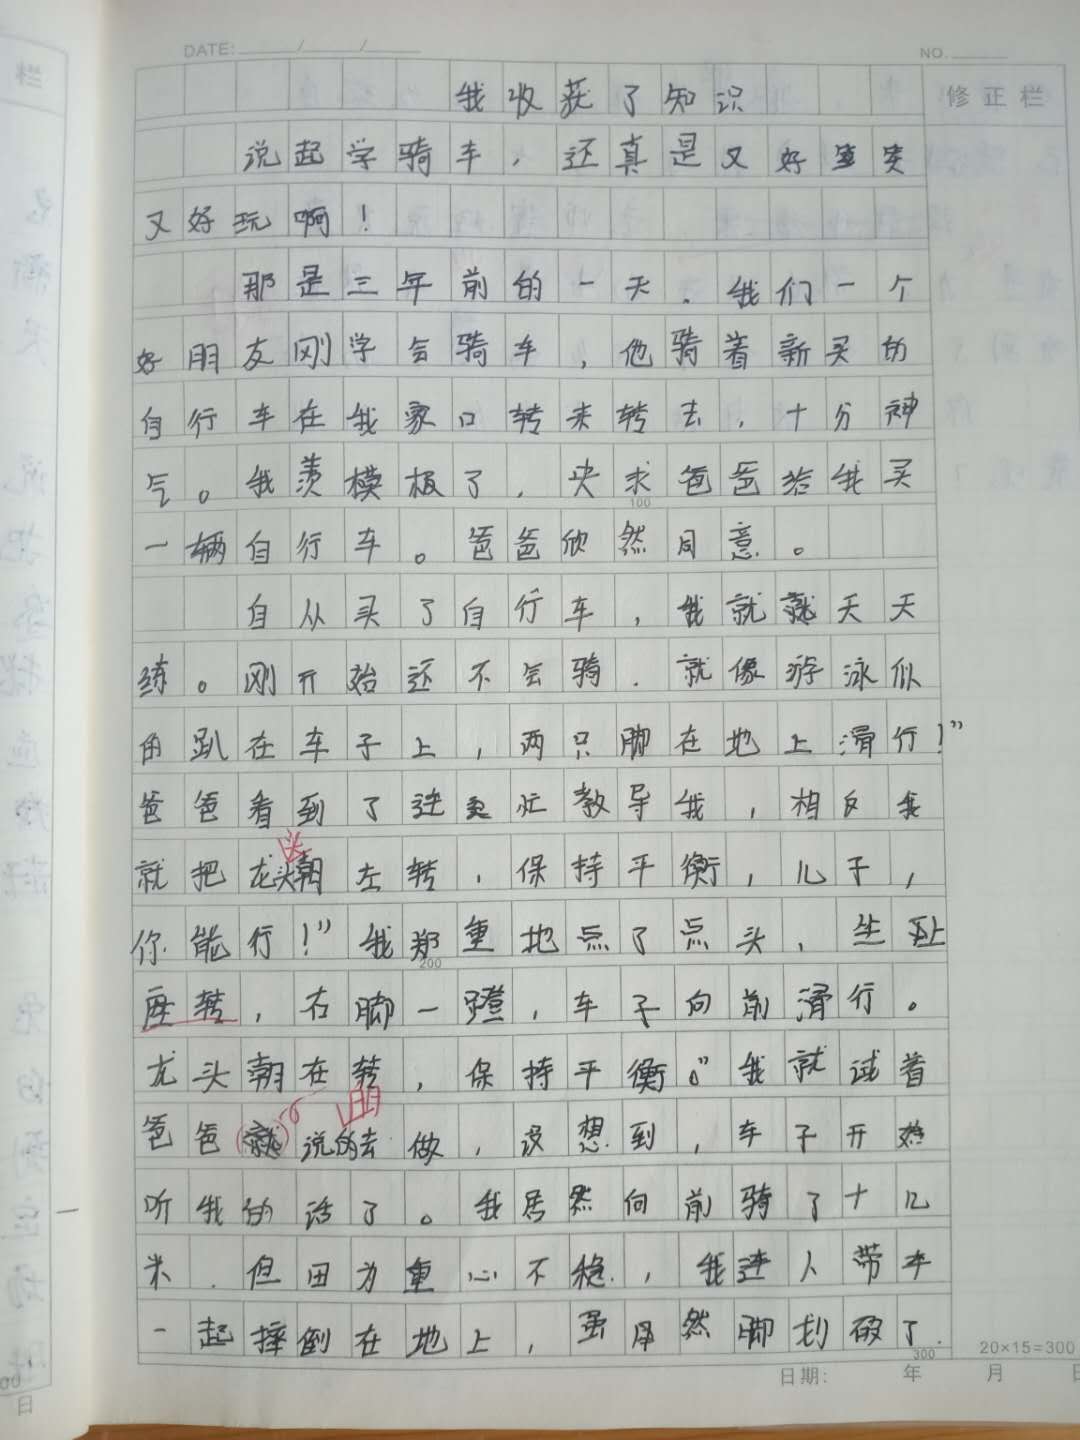 DATE: / /
NO.
我收获了知识
修正栏
说起学骑车，还真是又好笑
又好玩啊！
那是三年前的一天．我们一个
好朋友刚学会骑车，他骑着新买的
自行车在我家口转来转去，十分神
气。我羡模极了，央求爸爸给我买
100
一辆自行车。爸爸欣然同意。
自从买了自行车，我就就天天
练。刚开始还不会骑．就像游泳似
的趴在车子上，两只脚在地上滑行！”
爸爸看到了连忙教导我，相反我
头
就把龙头朝左转，保持平衡，儿子，
你能行！”我郑重地点了点头，坐
200
座转，右脚一蹬，车子向前滑行。
龙头朝在转，保持平衡。”我就试着
爸爸就说的去做，没想到，车子开始
听我的话了。我居然向前骑了十几
米．但因为重心不稳．，我连人带车
一起摔倒在地上，虽然脚划破了．
300
20×15=300
日期： 年 月 日